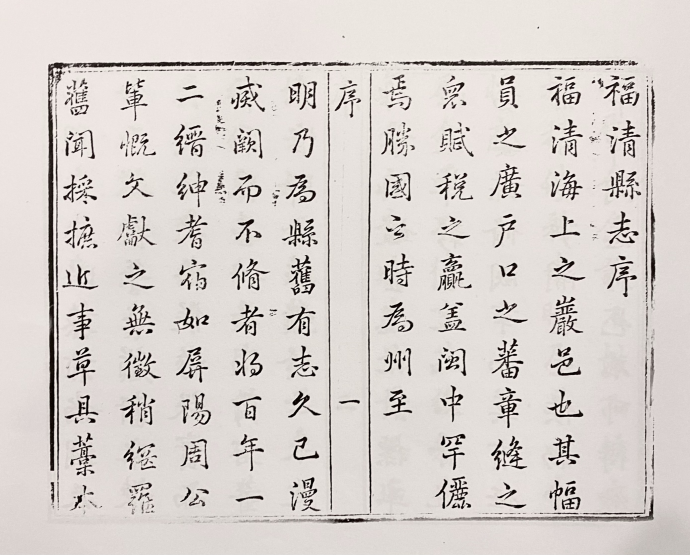 福清縣志序
福清海上之巖邑也其幅
員之廣户口之蕃章縫之
衆賦稅之贏盖閩中罕儷
焉勝國之時為州至
序
一
明乃為縣舊有志久已漫
滅闕而不脩者將百年一
二縉紳耆宿如屏陽周公
軰慨文獻之無徵稍網羅
舊聞採摭近事草具藁本